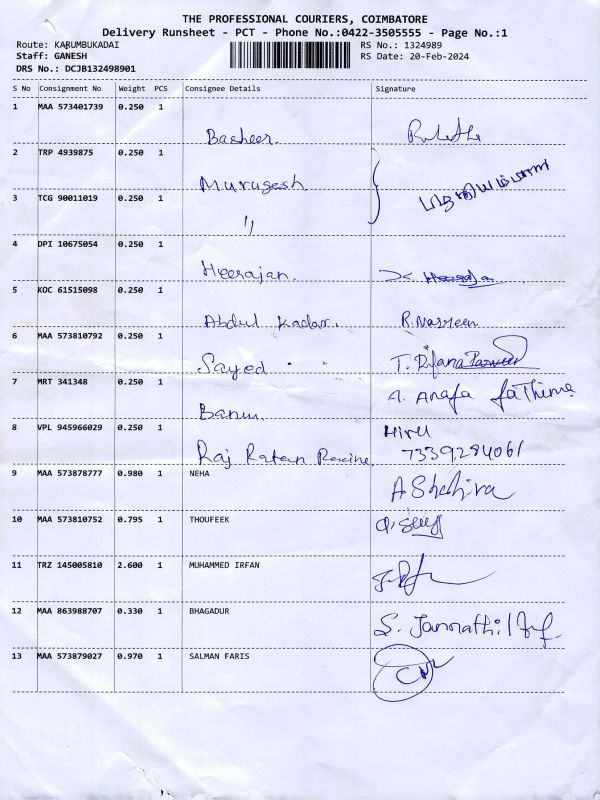 THE PROFESSIONAL COURIERS, COIMBATORE
Delivery Runsheet - PCT - Phone No.:0422-3505555 - Page No.:1
Route: KARUMBUKADAI RS No.: 1324989
Staff: GANESH RS Date: 20-Feb-2024
DRS No.: DCJB132498901
S No Consignment No Weight PCS Consignee Details Signature
1 MAA 573401739 0.250 1
Basheer
2 TRP 4939875 0.250 1
Murugesh
3 TCG 90011019 0.250 1
"
4 DPI 10675054 0.250 1
Heerajan.
5 KOC 61515098 0.250 1
Abdul Kadar. R.Nasreen
6 MAA 573810792 0.250 1
Sayed T. Rifana Parveen
7 MRT 341348 0.250 1
Banu. A. Anafa faThima
8 VPL 945966029 0.250 1 Hiru
Raj Ratan 7339284061
9 MAA 573878777 0.980 1 NEHA
A Shahira
10 MAA 573810752 0.795 1 THOUFEEK
11 TRZ 145005810 2.600 1 MUHAMMED IRFAN
12 MAA 863988707 0.330 1 BHAGADUR
S. Jannathil
13 MAA 573879027 0.970 1 SALMAN FARIS